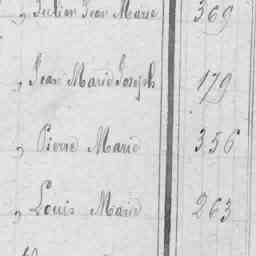 " Julien Jean Marie 369
" Jean Marie Joseph 179
" Pierre Marie 356
" Louis Marie 263